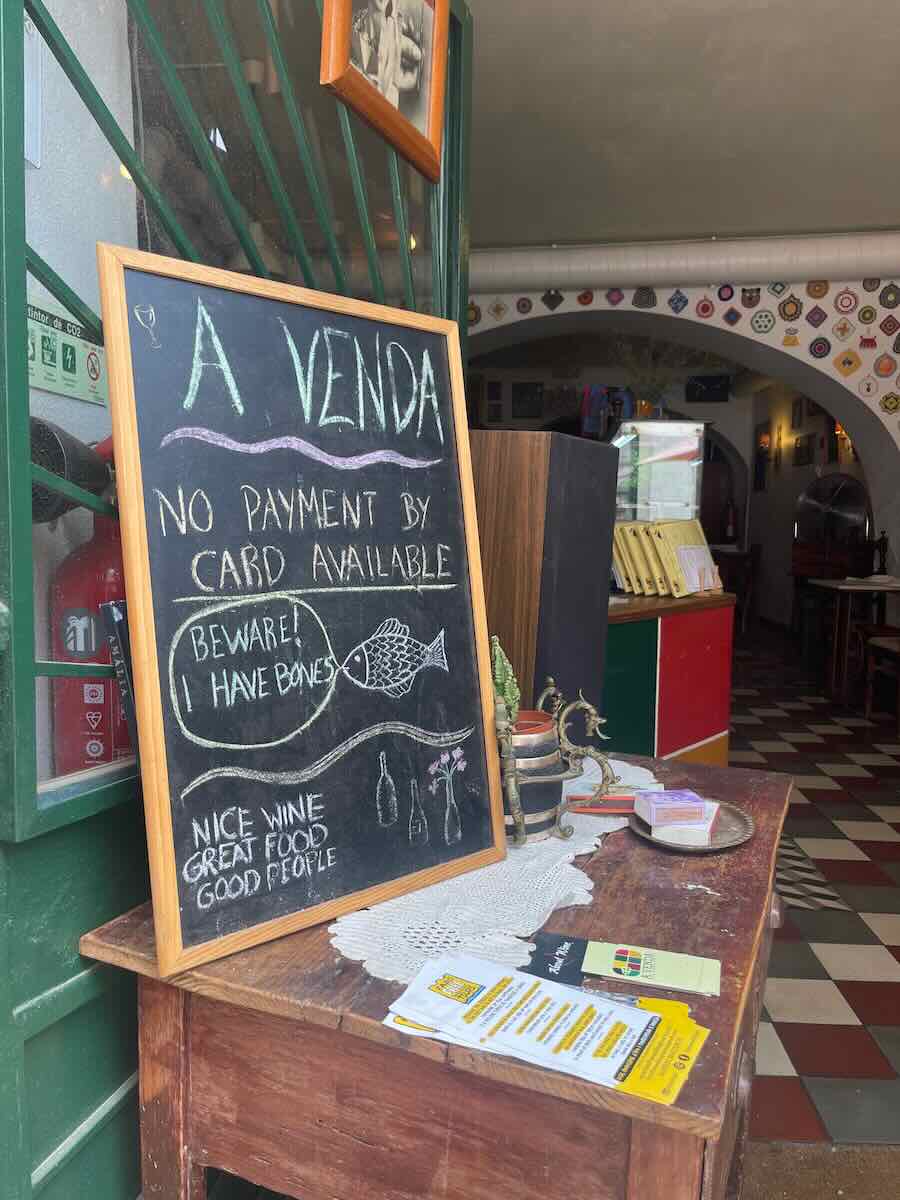 A VENDA
NO PAYMENT BY
CARD AVAILABLE
BEWARE!
I HAVE BONES
NICE WINE
GREAT FOOD
GOOD PEOPLE
tintor de CO2
A VENDA